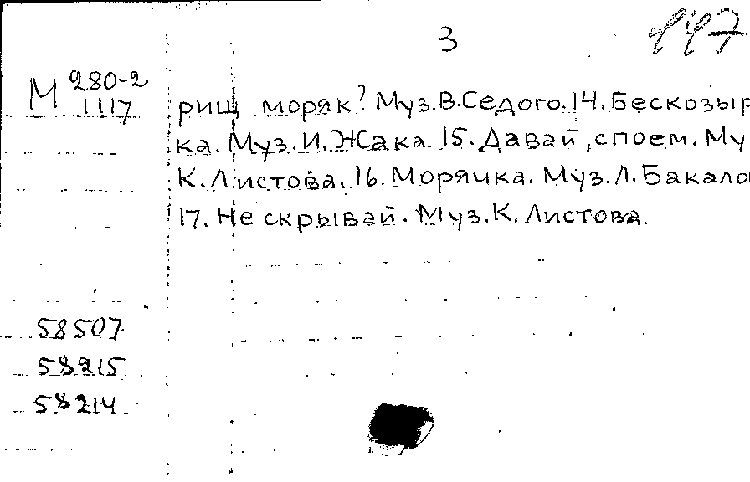 3 447
М 280-2
1117
рищ моряк? Муз.В.Седого.14.Бескозыр
ка. Муз.И.Жака.15.Давай, споем. Му
К.Листова.16.Морячка. Муз.Л.Бакало
17.Не скрывай. Муз.К.Листова.
58507
58215
58214